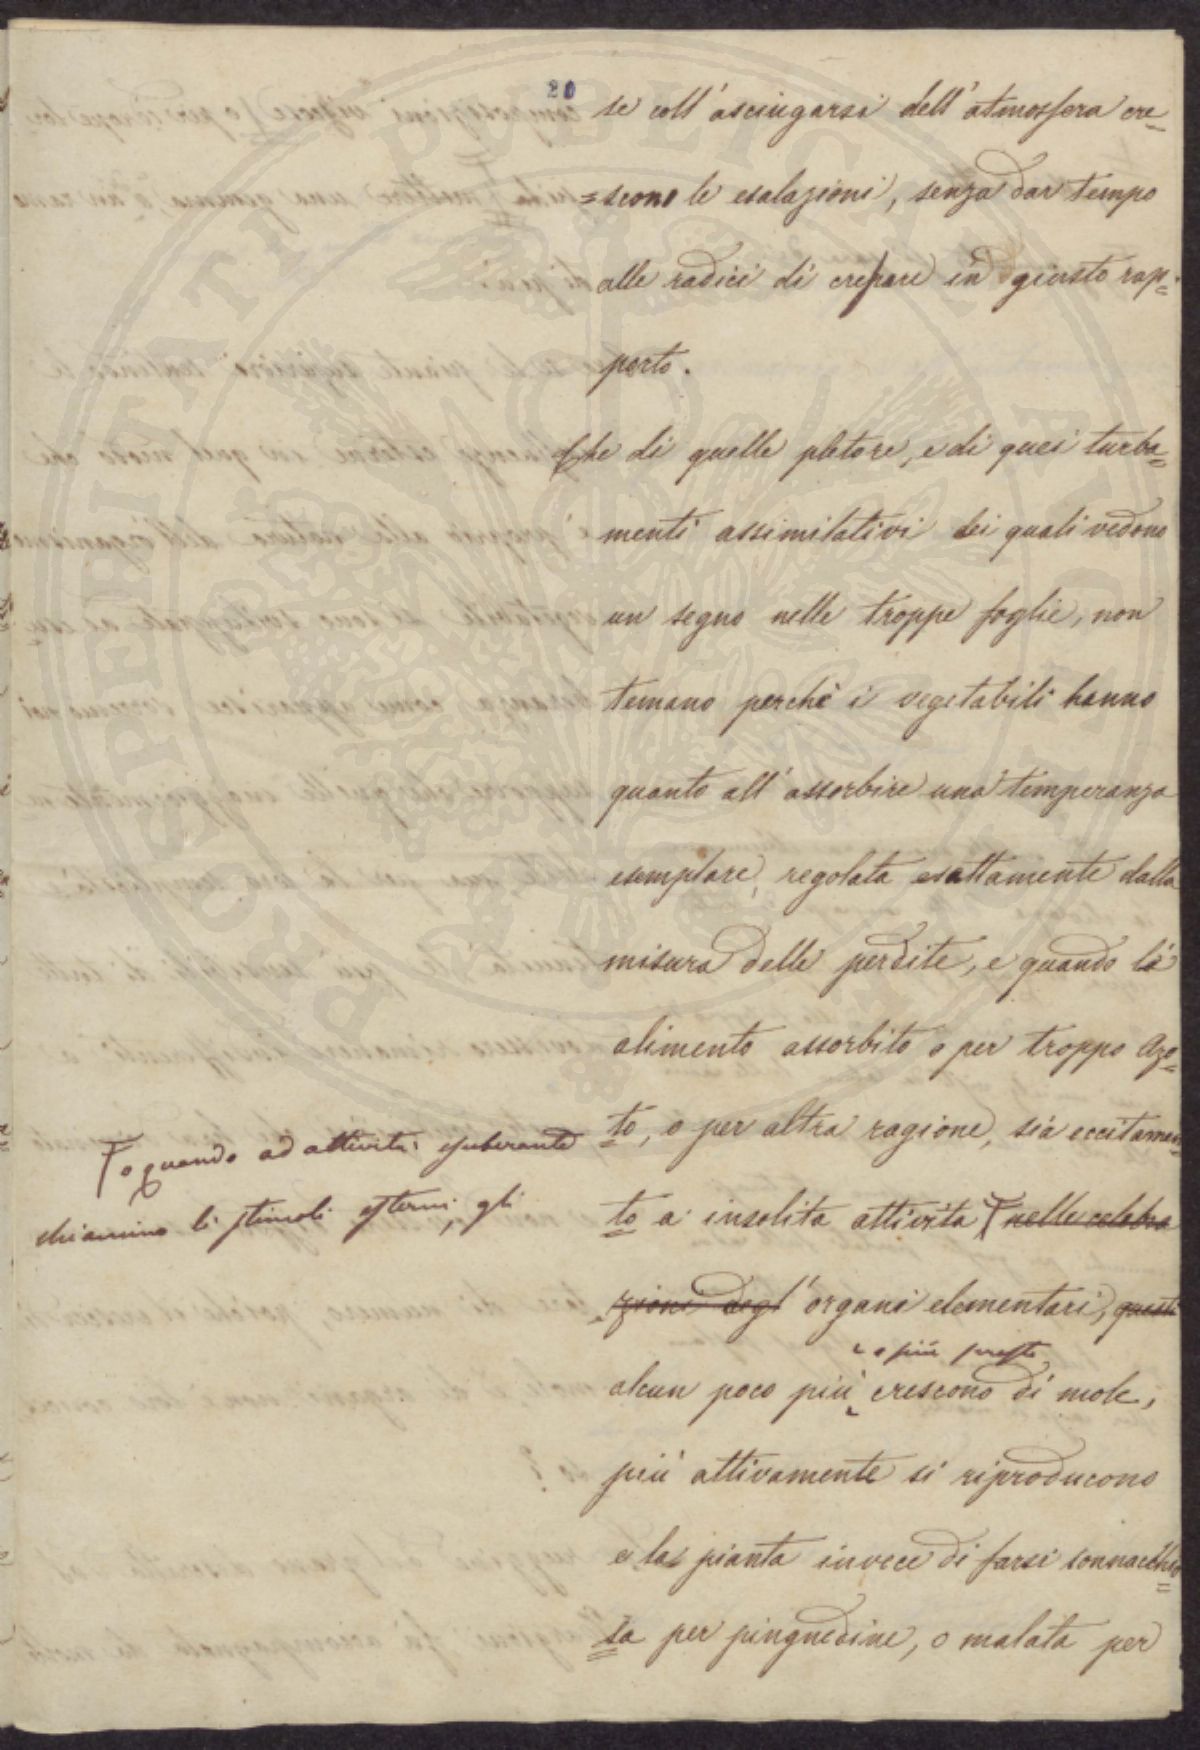 20
se coll'asciugarsi dell'atmosfera cre=
=scono le esalazioni, senza dar tempo
alle radici di crepare in giusto rap=
porto.
Che di quelle pletore, e di quei turba=
menti assimilativi dei quali vedono
un segno nelle troppe foglie, non
temano perchè i vegetabili hanno
quanto all'assorbire una temperanza
esemplare, regolata esattamente dalla
misura delle perdite, e quando la
alimento assorbito o per troppo Azo=
to, o per altra ragione, sia eccitamen=
to a insolita attività nelle celebra
zioni degl'organi elementari, questi
o più presto
alcun poco più crescono di mole,
più attivamente si riproducono
e la pianta invece di farsi sonnacchio=
sa per pinguedine, o malata per
o quando ad attività esuberante
chiamino li stimoli esterni, gli
PROSPERITATI PUBLICAE AUGENDAE